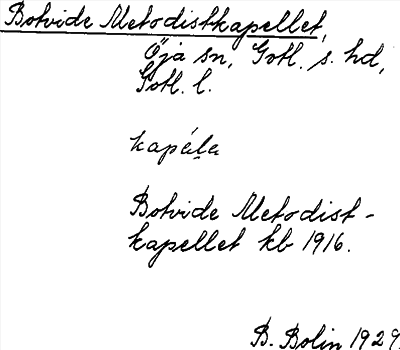 Botvide Metodistkapellet,
Öja sn, Gotl. s. hd,
Gotl. l.
kapéla
Botvide Metodist-
kapellet kb 1916.
B. Bolin 1929.